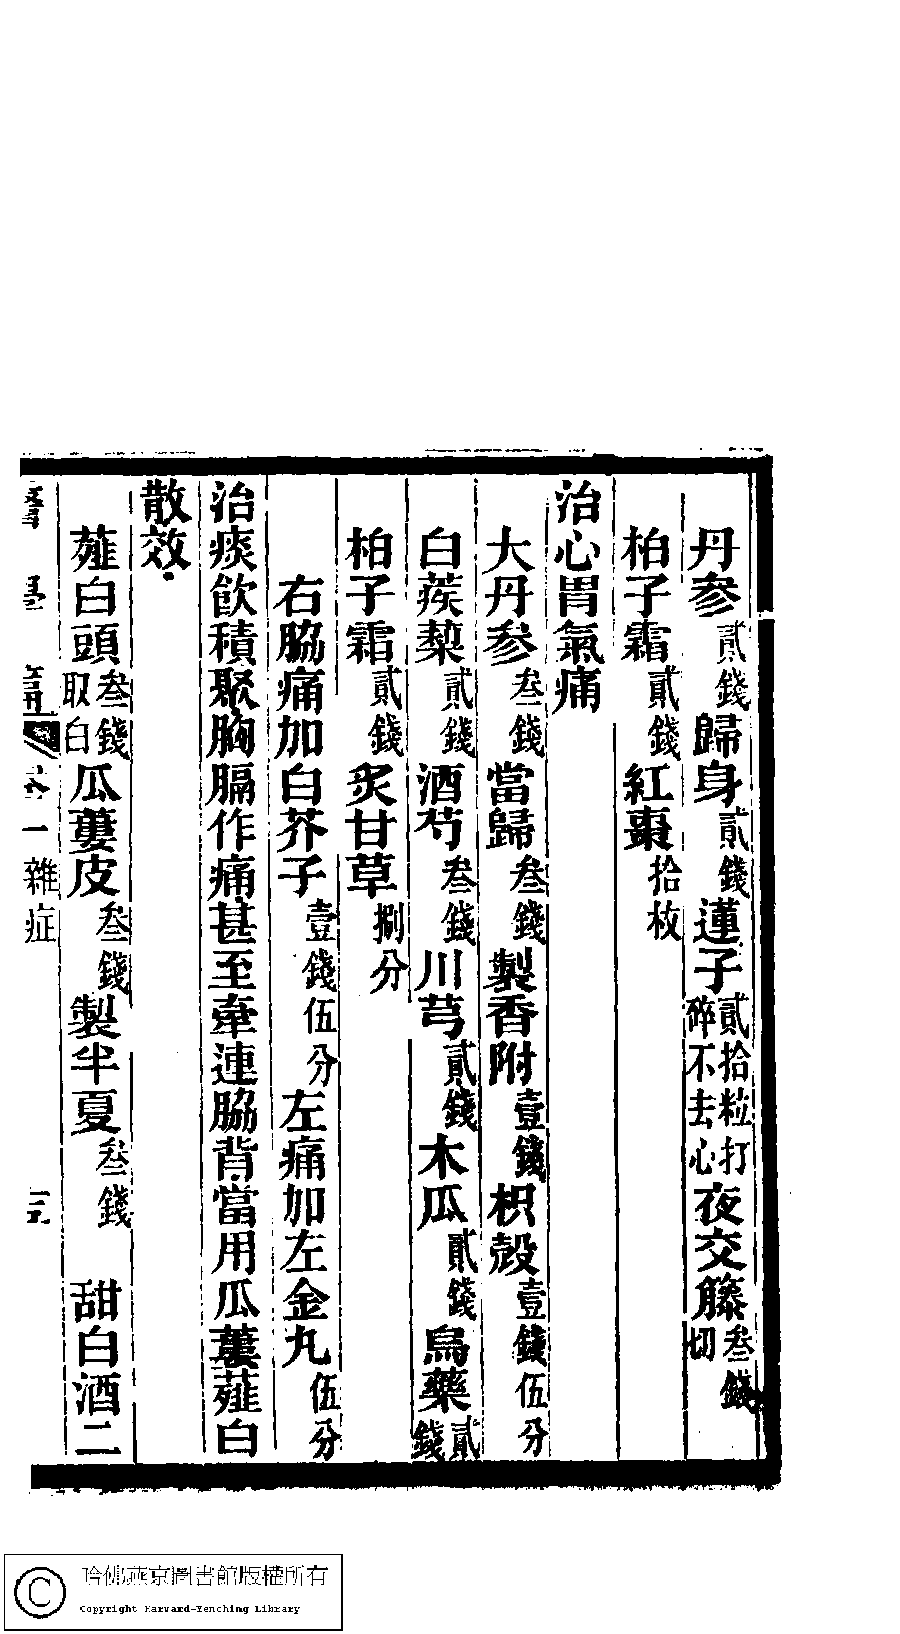 丹參貳錢歸身貳錢蓮子貳拾粒打碎不去心夜交籐叁錢切
柏子霜貳錢紅棗拾枚
治心胃氣痛
大丹參叁錢當歸叁錢製香附壹錢枳殼壹錢伍分
白蒺藜貳錢酒芍叁錢川芎貳錢木瓜貳錢烏藥貳錢
柏子霜貳錢炙甘草捌分
右脇痛加白芥子壹錢伍分左痛加左金丸伍分
治痰飲積聚胸膈作痛甚至牽連脇背當用瓜蔞薤白
散效
薤白頭叁錢取白瓜蔞皮叁錢製半夏叁錢 甜白酒二
卷一雜症 三
哈佛燕京圖書館版權所有
Copyright Harvard-Yenching Library